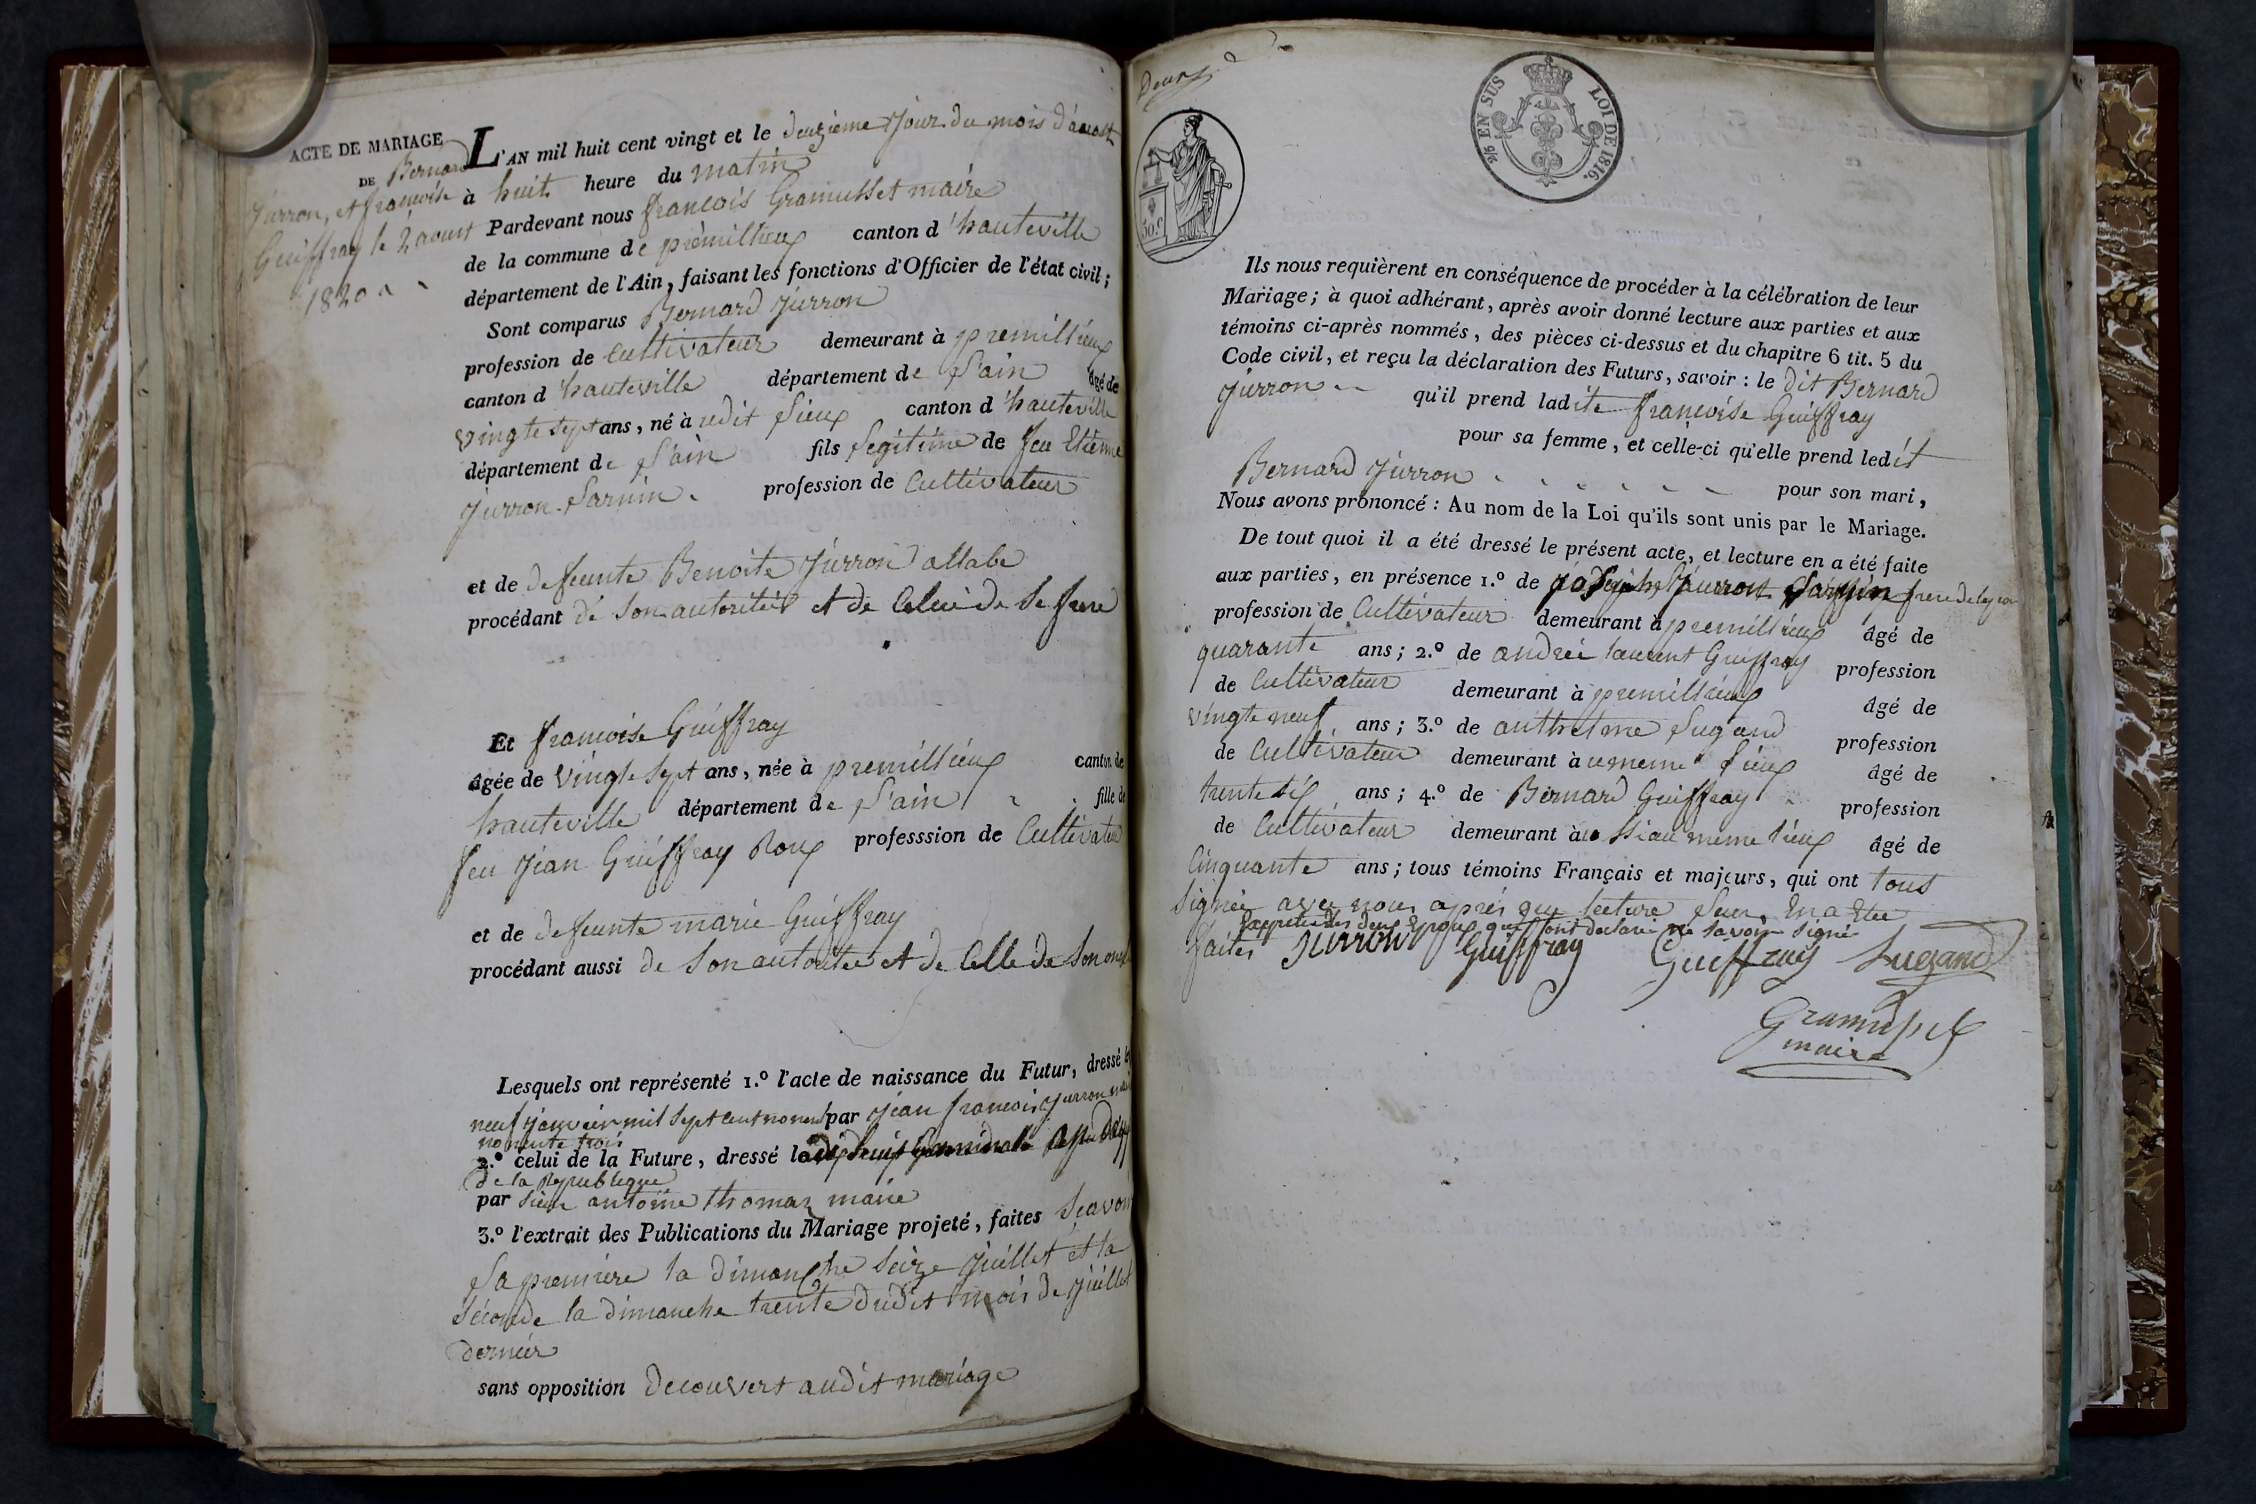 ACTE DE MARIAGE
DE Bernard
Jurron, et françoise
Guiffray le 2 aoust
1820
L'AN mil huit cent vingt et le deuzieme jour du mois d'aoust
à huit heure du matin
Pardevant nous françois Gramusset maire
de la commune de prémillieux canton d'hauteville
département de l'Ain, faisant les fonctions d'Officier de l'état civil;
Sont comparus Bernard Jurron
profession de Cultivateur demeurant à premillieux
canton d'hauteville département de l'ain âgé de
vingte sept ans, né à udit lieux canton d'hauteville
département de l'ain fils legitime de feu Etienne
Jurron Sarnin profession de Cultivateur
et de defeunte Benoite Jurron allabe
procédant de son autorité et de Celui de se frere
Et francoise Guiffray
âgée de vingte sept ans, née à premillieux canton de
hauteville département de l'ain fille de
feu Jean Guiffray Roux professsion de Cultivateur
et de defeunte marie Guiffray
procédant aussi de son autoritee et de Celle de son
Lesquels ont représenté 1.º l'acte de naissance du Futur, dressé le
neuf janvier mil sept cent nonente par Jean francois Jurron
nonente trois
2.º celui de la Future, dressé le dix huit Germinal
De la Republique
par sieur antoine thomas maire
3.º l'extrait des Publications du Mariage projeté, faites scavoir
la premiere la dimanche seize Juillet et la
seconde la dimanche trente dudit mois de Juillet
dernier
sans opposition decouvert audit mariage
Deux
50 C.
96 EN SUS LOI DE 1816.
Ils nous requièrent en conséquence de procéder à la célébration de leur
Mariage; à quoi adhérant, après avoir donné lecture aux parties et aux
témoins ci-après nommés, des pièces ci-dessus et du chapitre 6 tit. 5 du
Code civil, et reçu la déclaration des Futurs, savoir: le dit Bernard
Jurron qu'il prend ladite francoise Guiffray
pour sa femme, et celle-ci qu'elle prend ledit
Bernard Jurron pour son mari,
Nous avons prononcé: Au nom de la Loi qu'ils sont unis par le Mariage.
De tout quoi il a été dressé le présent acte, et lecture en a été faite
aux parties, en présence 1.º de joseph Jurron Sarnin frere
profession de Cultivateur demeurant à premillieux âgé de
quarante ans; 2.º de andréé laurent Guiffray profession
de Cultivateur demeurant à premillieux âgé de
vingte neuf ans; 3.º de anthelme Lugand profession
de Cultivateur demeurant à ce meme lieux âgé de
trente six ans; 4.º de Bernard Guiffray profession
de Cultivateur demeurant à au meme lieux âgé de
Cinquante ans; tous témoins Français et majeurs, qui ont tous
signée avec nous aprés que lecture leur en a etee
Excepter les deux Epoux qui ont declaré ne savoir signé
faites Jurron Guiffray Guiffray Lugand
Gramusset
maire